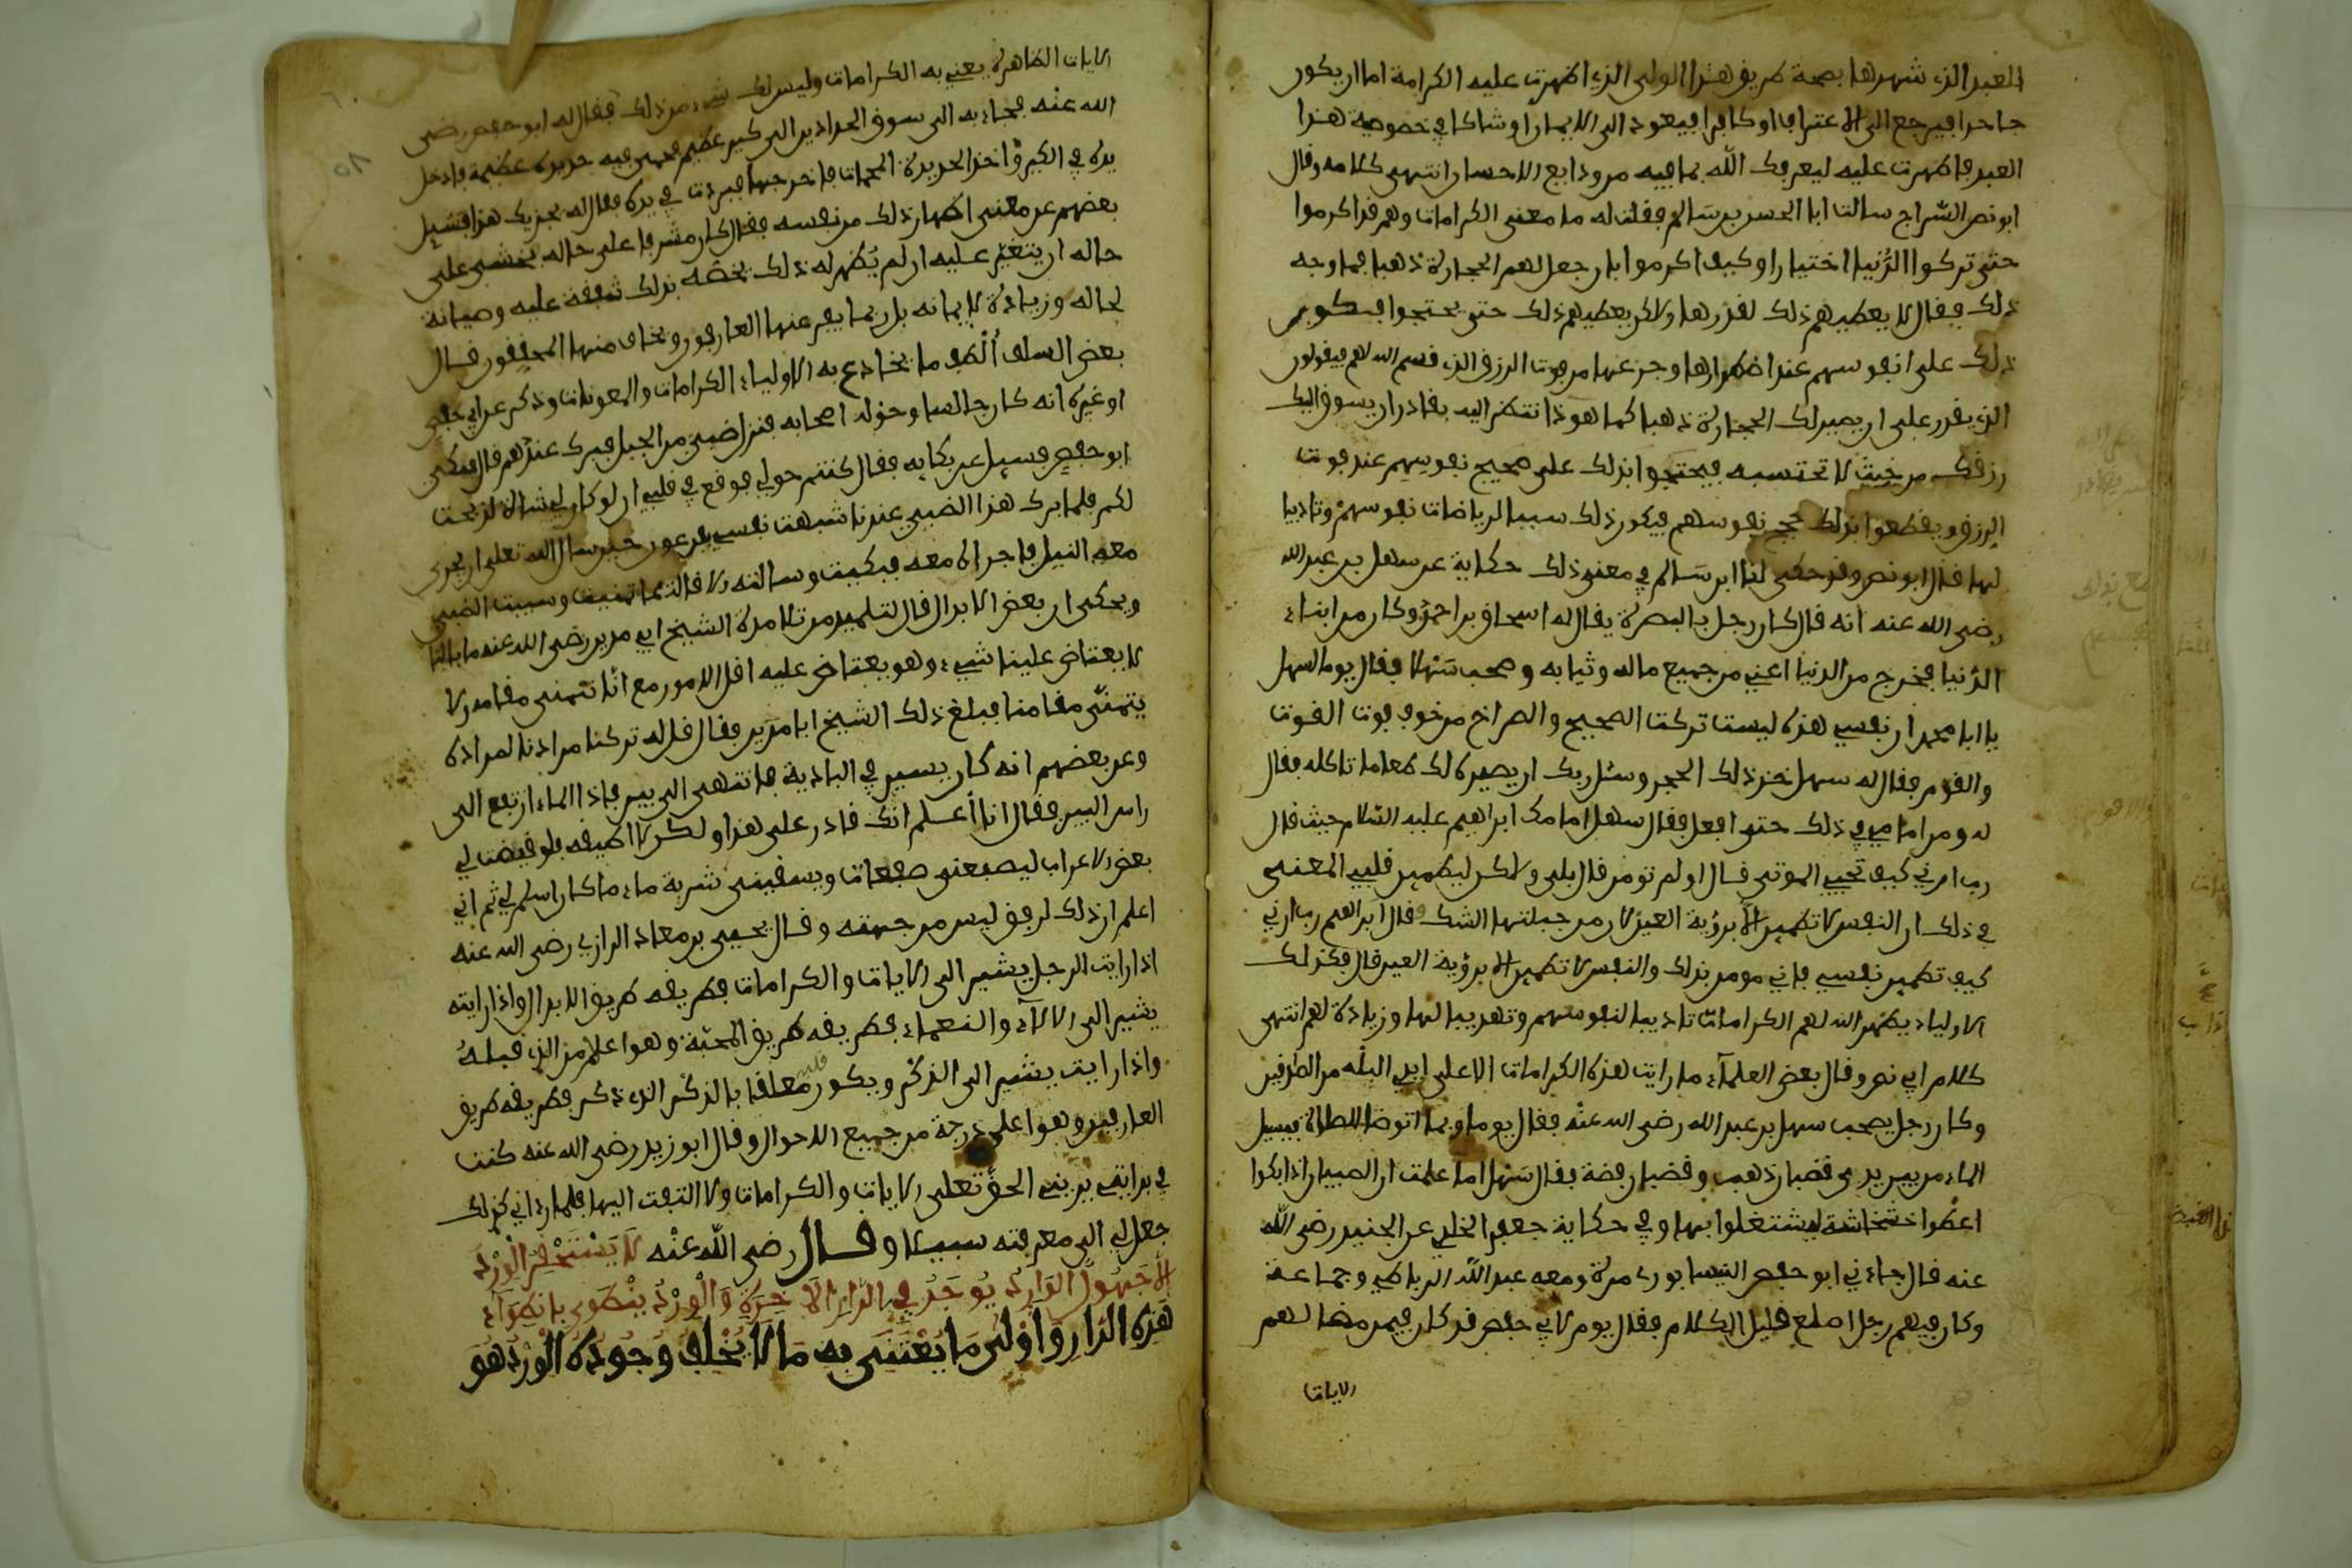 العبد الذي شهدها بصحة طريق هذا الولي الذي اظهرت عليه الكرامة اما ان يكون
جاحدا فيرجع الى الاعتراف او كافرا فيعود الى الايمان او شاكا في خصوصية هذا
العبد فاظهرت عليه ليعرفك الله بما فيه من ودايع الاحسان انتهى كلامه وقال
ابو نصر السّراج سالت ابا الحسن بن سَالم فقلت له ما معنى الكرامات وهم قد اكرموا
حتى تركوا الدُّنيا اختيارا وكيف اكرموا بان جعل لهم الحجارة ذهبا فما وجه
ذلك فقال لا يعطيهم ذلك لقدرها ولاكن يعطيهم ذلك حتى يحتجوا بكون
ذلك على انفوسهم عند اضطرارها وجزعها من فوت الرزق الذي قسم الله لهم فيقولون
الذي يقدر على ان يصير لك الحجارة ذهبا كما هو ذا تنظر اليه بقادر ان يسوق اليك
رزقك من حيث لا تحتسبه فيحتجوا بذلك على ضجيج نفوسهم عند فوت
الرزق ويقطعوا بذلك حجج نفوسهم فيكون ذلك سببا لرياضات نفوسهم وتاديبا
لها قال ابو نصر وقد حكى لنا ابن سَالم في معنى ذلك حكاية عن سهل بن عبد الله
رضي الله عنه انه قال كان رجل بالبصرة يقال له اسحاق بن احمد وكان من ابناء
الدُّنيا فخرج من الدنيا اعني من جميع ماله وثيابه وصحب سَهْلا فقال يوما لسهل
يا ابا محمد ان نفسي هذه ليست تركت الضجيج والصراخ من خوف فوت القوت
والقوم فقال له سهل خذ ذلك الحجر وسَل ربك ان يصيره لك طعاما تاكله فقال
له ومن امامي في ذلك حتى افعل فقال سهل امامك ابراهيم عليه السّلام حيث قال
رب ارني كيف تحيي الموتى قال اولم تومن قال بلى ولاكن ليطمين قلبي المعنى
في ذلك ان النفس لا تطمين الا برؤية العين لان من جبلتها الشك فقال ابراهيم رب ارني
كيف تطمين نفسي فاني مومن بذلك والنفس لا تطمين الا برؤية العين قال فكذلك
الاولياء يظهر الله لهم الكرامات تاديبا لنفوسهم وتهذيبا لها وزيادة لهم انتهى
كلام ابي نصر وقال بعض العلمآء ما رايت هذه الكرامات الا على ايدي البله من الصَّادقين
وكان رجل يصحب سهل بن عبد الله رضي الله عنه فقال يوما ربما اتوضا للصلاة فيسيل
الماء من بين يدي قضبان ذهب وقضبان فضة فقال سَهْل اما علمت ان الصبيان اذا بكوا
اعطوا خشخاشة ليشتغلوا بها وفي حكاية جعفر الخلدي عن الجنيد رضي الله
عنه قال جاءني ابو حفص النيسابوري مرة ومعه عبد الله الرباطي وجماعة
وكان فيهم رجل اصلع قليل الكلام فقال يوم لابي حفص قد كان فيمن مضا لهم
الايات
الايات الظاهرة يعني به الكرامات وليس لك شيء من ذلك فقال له ابو حفص رضي
الله عنه فجاء به الى سوق الحدادين الى كير عظيم محمى فيه حديدة عظيمة فادخل
يده في الكير واخذ الحديدة المحماة فاخرجها فبردت في يده فقال له يجزيك هذا فسيل
بعضهم عن معنى اظهار ذلك من نفسه فقال كان مشرفا على حاله يخشى على
حاله ان يتغير عليه ان لم يُظهر له ذلك فخصّه بذلك شفقة عليه وصيانة
لحاله وزيادة لايمانه بل ربما يفر عنها العارفون ويخاف منها المحققون قال
بعض السلف أَلطف ما يخادع به الاولياء الكرامات والمعونات وذكر عن ابي حفص
او غيره انه كان جالسا وحوله اصحابه فنزل ضبي من الجبل فبرك عندهم قال فبكى
ابو حفص فسيل عن بكايه فقال كنتم حولي فوقع في قلبي ان لو كان لي شاة لذبحت
لكم فلما برك هذا الضبي عندنا شبهت نفسي بفرعون حين سال الله تعلى ان يجري
معه النيل فاجراه معه فبكيت وسالته الاقالة مما تمنيت وسيبت الضبي
ويحكى ان بعض الابدال قال لتلميذ من تلامذة الشيخ ابي مدين رضي الله عنه ما بالنا
لا يعتاض علينا شيء وهو يعتاض عليه اقل الامور مع انّا نتمنى مقامه ولا
يتمنّى مقامنا فبلغ ذلك الشيخ ابا مَدين فقال قل له تركنا مرادنا لمراده
وعن بعضهم انه كان يسير في البادية فانتهى الى بير فاذا الماء ارتفع الى
راس البير فقال انا أعلم انك قادر على هذا ولكن لا اطيقه فلو قيضت لي
بعض الاعراب ليصبعني صفعات ويسقيني شربة ماء ما كان اسلم لي ثم اني
اعلم ان ذلك لرفق ليس من جهته وقال يحيى بن معاذ الرازي رضي الله عنه
اذا رايت الرجل يشير الى الايات والكرامات فطريقه طريق الابدال واذا رايته
يشير الى الالآء والنعماء فطريقه طريق المحبّة وهو اعلا من الذي قبلهُ
واذا رايت يشير الى الذكر ويكون قلبه معلقا بالذكر الذي ذكر فطريقه طريق
العارفين وهو اعلى درجة من جميع الاحوال وقال ابو زيد رضي الله عنه كنت
في بدايتي يريني الحق تعلى الايات والكرامات ولا التفت اليها فلما راني كذلك
جعل لي الى معرفته سبيلا وقال رضي الله عنه لا يَسْتَحْقِرُ الْوِرْدَ
الا جَهُولٌ الوَارِدُ يُوجَدُ في الدارِ الاخِرَةِ وَالْوِرْدُ ينْطَوِي بانطِوَآءِ
هَذِهِ الدّارِ وَاوْلى مَا يُعْتَنَى به مَا لا يُخْلَفُ وُجُودُهُ الْوِرْدُ هُوَ